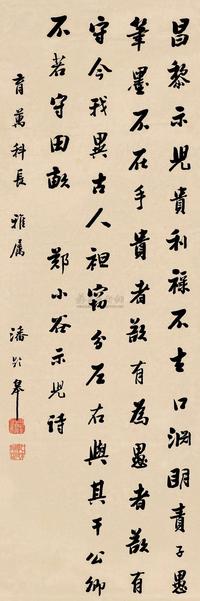 昌黎示兒貴利祿不去口淵明責子愚
筆墨不在手貴者蓋有為愚者蓋有
守今我異古人袒竊分左右與其干公卿
不若守田畝 鄭小谷示兒詩
育萬科長 雅屬 潘齡皋